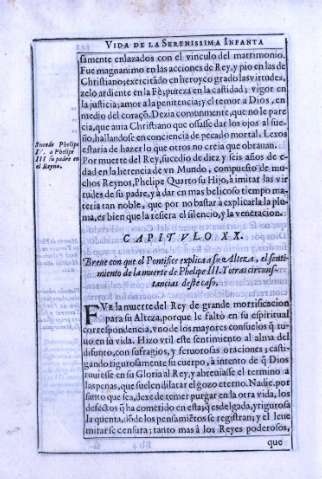 VIDA DE LA SERENISSIMA INFANTA
samente enlazados con el vinculo del matrimonio.
Fue magnanimo en las acciones de Rey, y pio en las de
Christiano; exercitado en heroyco grado las virtudes,
zelo ardiente en la Fè; pureza en la castidad; vigor en
la justicia; amor a la penitencia; y el temor a Dios, en
medio del coraçõ. Dezia continuamente, que no le parecia
que auia Christiano que osasse dar los ojos al sueño,
hallandose en conciencia de pecado mortal. Lexos
estaria de hazer lo que otros no creia que obrauan.
Por muerte del Rey, sucedio de diez y seis años de edad
en la herencia de vn Mundo, compuesto de muchos
Reynos, Phelipe Quarto su Hijo, à imitar las virtudes
de su padre, y à dar en mas belicoso tiempo materia
tan noble, que por no bastar à explicarla la pluma,
es bien que la refiera el silencio, y la veneracion.
Sucede Phelipe
IV. a Phelipe
III su padre en
el Reyno.
CAPITVLO XX.
Breue con que el Pontifice explica a su Alteza, el sentimiento
de la muerte de Phelipe III. Y otras circunstancias
deste caso.
FVE la muerte del Rey de grande mortificacion
para su Alteza, porque le faltò en su espiritual
correspondencia, vno de los mayores consuelos q̃ tuuo
en su vida. Hizo vtil este sentimiento al alma del
difunto, con sufragios, y feruorosas oraciones; castigando
rigurosamente su cuerpo, à intento de q̃ Dios
tuuiesse en su Gloria al Rey, y abreuiasse el termino a
las penas, que suelen dilatar el gozo eterno. Nadie, por
santo que sea, dexe de temer purgar en la otra vida, los
defectos q̃ ha cometido en esta; q̃ es delgada, y rigurosa
la quenta, dõde los pensamiẽtos se registran; y el leue
mirar se censura; tanto mas à los Reyes poderosos,
que